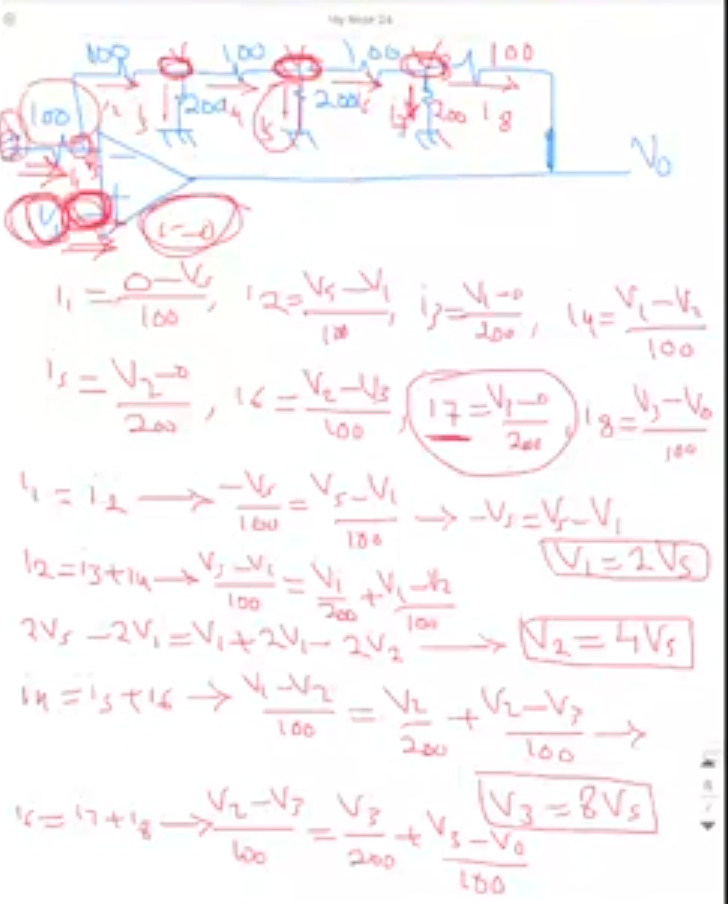 100 V₁ 100 V₂ 100 V₃ 100
100 i₂ i₃ 200 i₄ i₅ 200 i₆ i₇ 200 i₈
V₀
i₁
Vₛ i=0
i₁ = (0-Vₛ)/100, i₂ = (Vₛ-V₁)/100, i₃ = (V₁-0)/200, i₄ = (V₁-V₂)/100
i₅ = (V₂-0)/200, i₆ = (V₂-V₃)/100, i₇ = (V₃-0)/200, i₈ = (V₃-V₀)/100
i₁ = i₂ → -Vₛ/100 = (Vₛ-V₁)/100 → -Vₛ = Vₛ-V₁
V₁ = 2Vₛ
i₂ = i₃+i₄ → (Vₛ-V₁)/100 = V₁/200 + (V₁-V₂)/100
2Vₛ - 2V₁ = V₁ + 2V₁ - 2V₂ → V₂ = 4Vₛ
i₄ = i₅+i₆ → (V₁-V₂)/100 = V₂/200 + (V₂-V₃)/100 →
V₃ = 8Vₛ
i₆ = i₇+i₈ → (V₂-V₃)/100 = V₃/200 + (V₃-V₀)/100